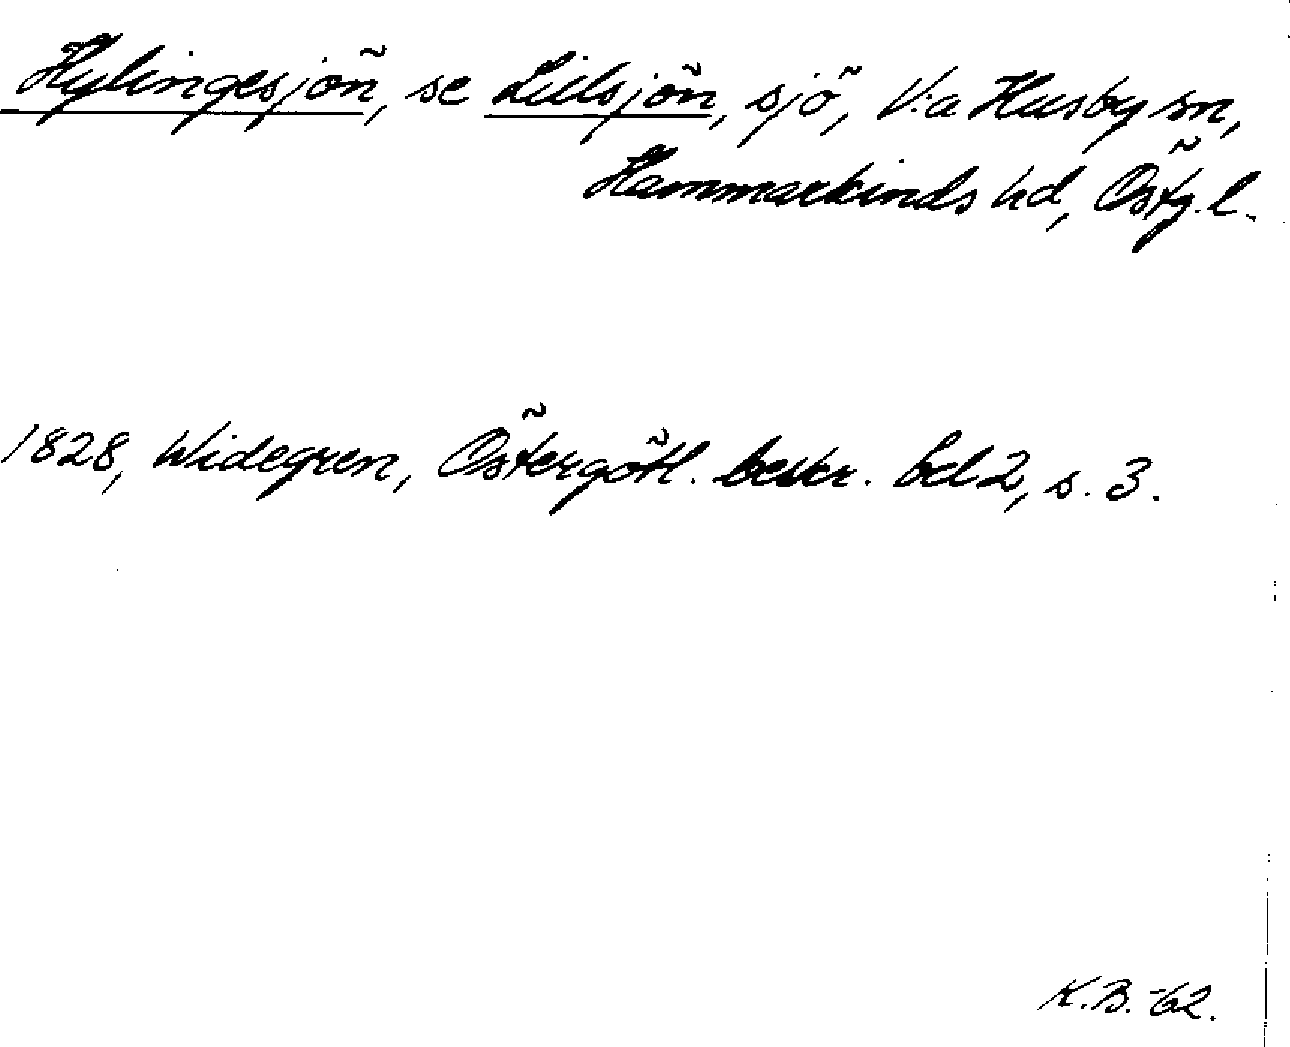 Hylingesjön, se Lillsjön, sjö, V:a Husby sn,
Hammarkinds hd, Östg. l.
1828, Widegren, Östergötl. beskr. bd 2, s. 3.
K.B. -62.